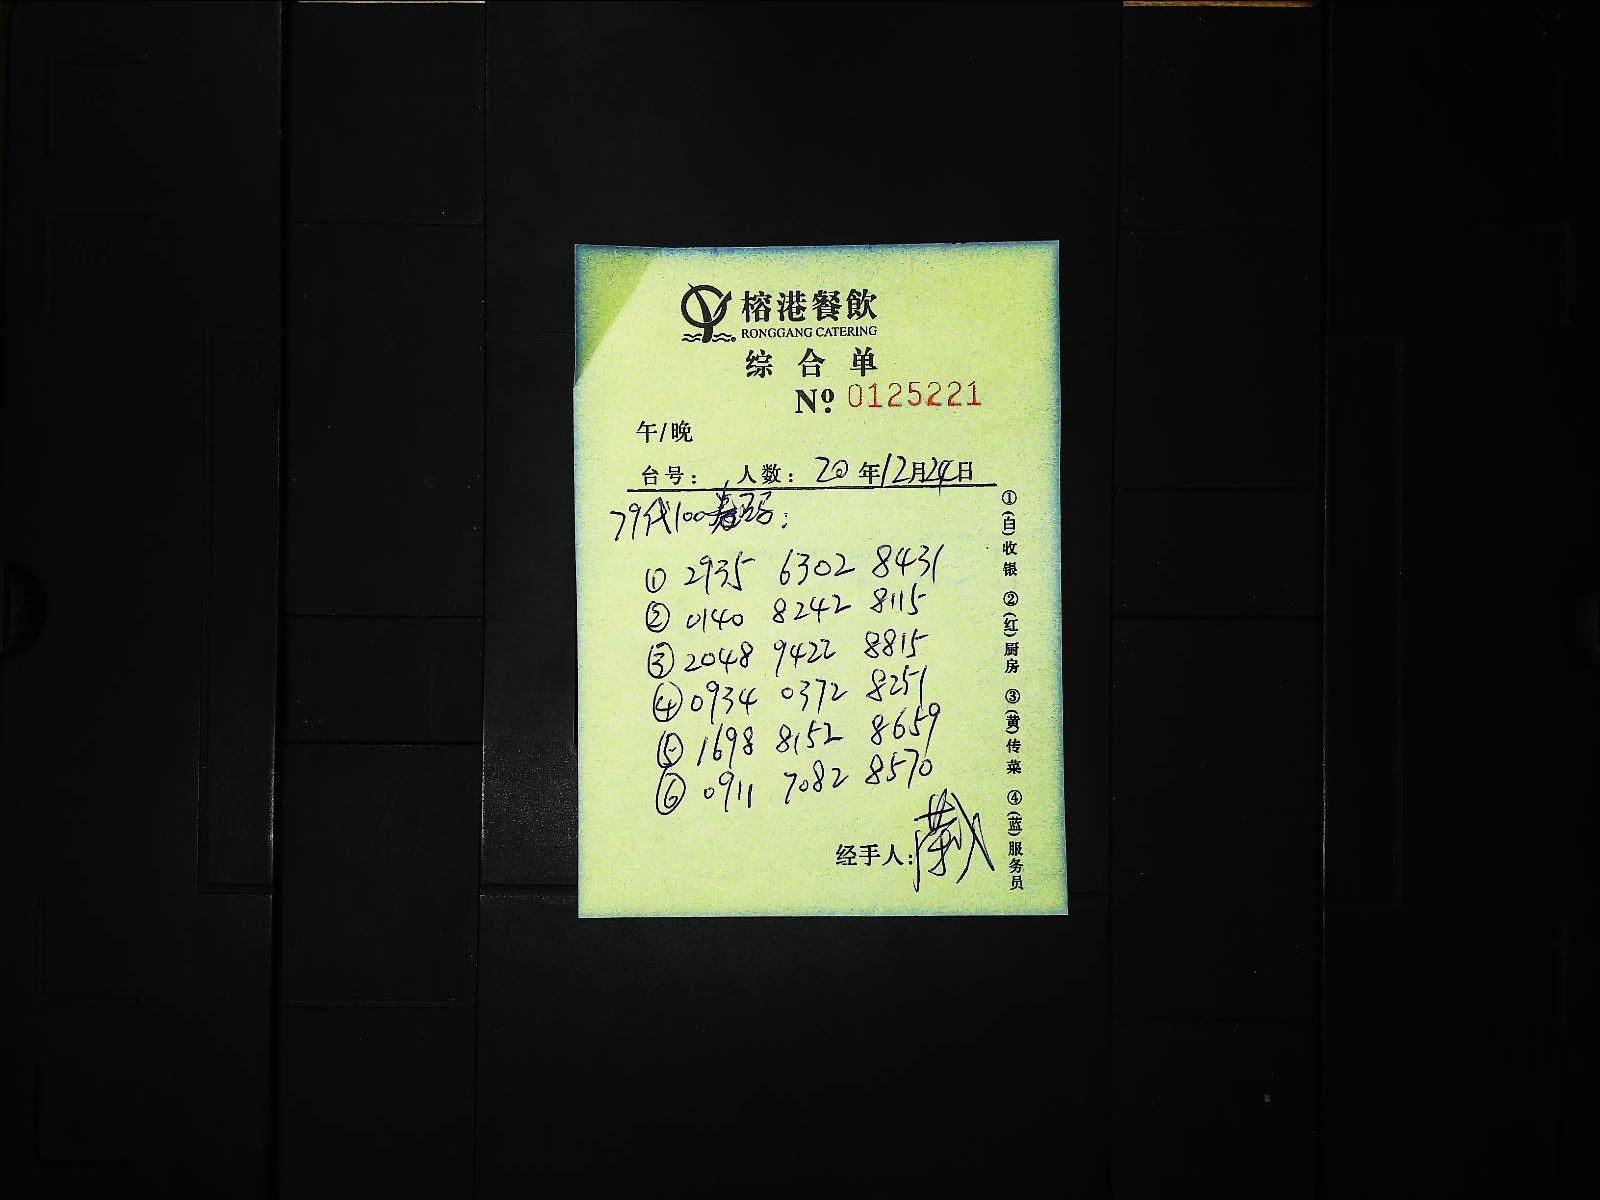 榕港餐飲
RONGGANG CATERING
综合单
Nº 0125221
午/晚
台号： 人数： 20年12月24日
79代100券码：
① 2935 6302 8431
② 0140 8242 8115
③ 2048 9422 8815
④ 0934 0372 8251
⑤ 1698 8152 8659
⑥ 0911 7082 8570
经手人：
①(白)收银 ②(红)厨房 ③(黄)传菜 ④(蓝)服务员